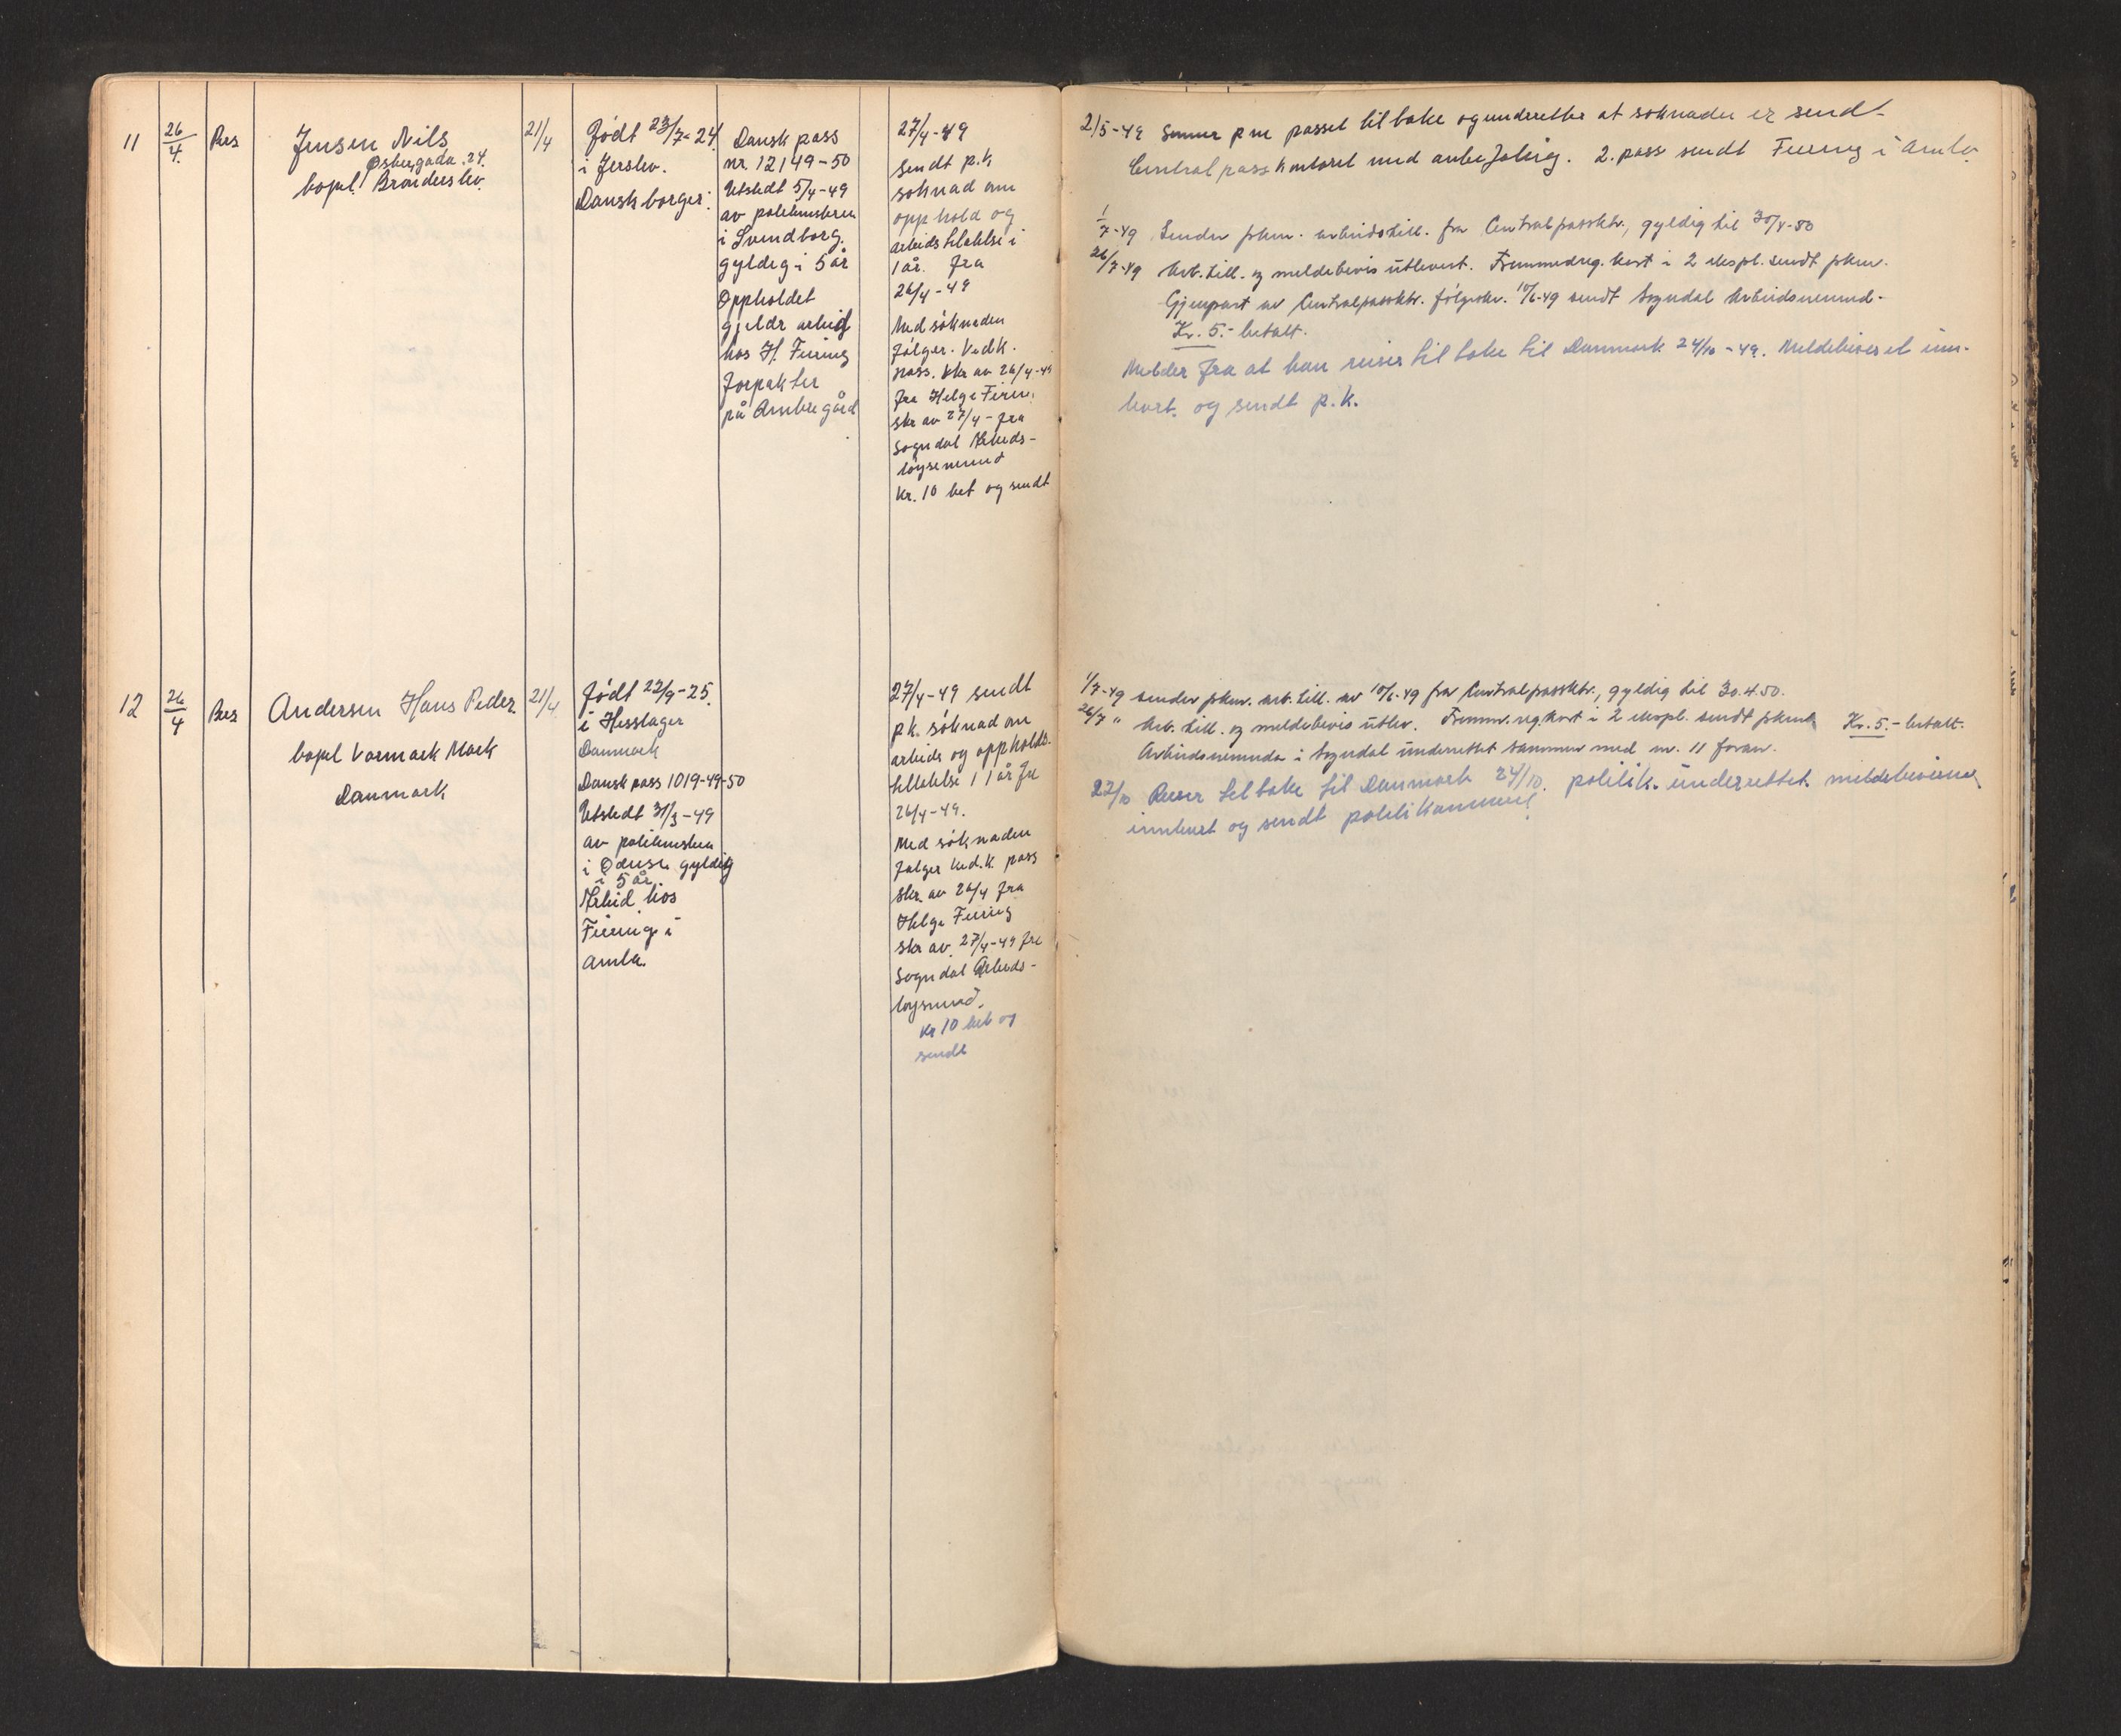 11
26/4.
Pers
Jensen Nils
Østergada 24.
bopl. Brønderslev.
21/4
Født 23/7-24.
i Jerslev.
Dansk borger.
Dansk pass
nr. 12149-50
Utstedt 5/4-49
av politimesteren
i Svendborg.
gyldig i 5 år
Oppholdet
gjeldr arbeid
hos H. Furing
forpakter
på Amblegård
27/4-49
Sendt p.k
søknad om
opphold og
arbeidstilatelse i
1 år. fra
26/4-49
Med søknaden
følger. Vedk.
pass. skr av 26/4-49
fra Helge
skr av 27/4- fra
Sogndal Arbeids-
løysenemnd
Kr. 10 bet og sendt
2/5-49 passet tilbake og underetter at søknaden er sendt
Centralpasskontoret med anbefaling. 2. pass sendt Fuering i Amla.
1/7-49 Sender pkm. arbeidstill. fra Centralpassktr., gyldig til 30/4-50
26/7-49 Arb.till. og meldebevis utlevert. Fremmedreg.kort i 2 ekspl. sendt pkm.
Gjenpart av Centralpassktr. følgeskr. 10/6-49 sendt Sogndal Arbeidsnemnd-
Kr. 5.- betalt.
Melder fra at han reiser tilbake til Danmark 24/10-49. Meldebeviset inn-
kert. og sendt p.k.
12
26/4
Pers
Andersen Hans Peder
bopl Vormark Mark
Danmark
21/4
Født 22/9-25.
i Hesslager
Danmark
Dansk pass 1019-49-50
Utstedt 31/3-49
av politimesteren
i Odense gyldig
i 5 år.
Arbeid hos
Fuering i
Amla.
27/4-49 sendt
pk. søknad om
arbeids og oppholds-
tillatelse i 1 år fra
26/4-49.
Med søknaden
følger Ved.k. pass
skr. av 26/4 fra
Helge Fuering
skr av. 27/4-49 fra
Sogndal Arbeids-
løysnemd.
kr 10 bet og
sendt
1/7-49 sender pkm. arb.till. av 10/6-49 fra Centralpassktr., gyldig til 30.4.50.
26/7 " Arb.till. og meldebevis utlev. Fremm.reg.kort i 2 ekspl. sendt pkm. Kr. 5.- betalt.
Arbeidsnemnda i Sogndal underrettet sammen med nr. 11 foran.
22/10 Reiser tilbake til Danmark 24/10. politik. underrettet. meldebeviset
innkert og sendt politikammeret